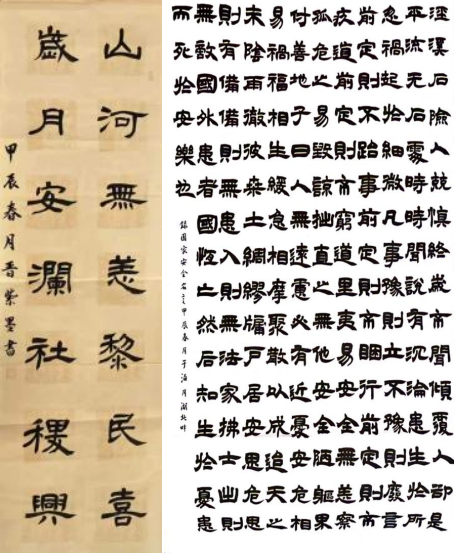 山河無恙黎民喜
歲月安瀾社稷興
甲辰春月晋紫墨書
涇溪石險人兢慎終歲不聞傾覆人却是
平流无石處時時聞說有沉淪患生於所
忽禍起於細微凡事豫則立不豫則廢言
前定則不跲事前定則不困行前定則不
疚道前定則不窮道里夷易安全無恙察
孤危之易毀諒拙直之無他安全陋軀果
付善地子曰人無遠慮必有近憂安危相
易禍福相生緩急相摩聚散以成迨天之
未陰雨徹彼桑土綢繆牖戶居安思危思
則有備備則無患入則無法家拂士出則
無敵國外患者國恆亡然后知生於憂患
而死於安樂也
錄國家安全名言甲辰春月于月湖北畔